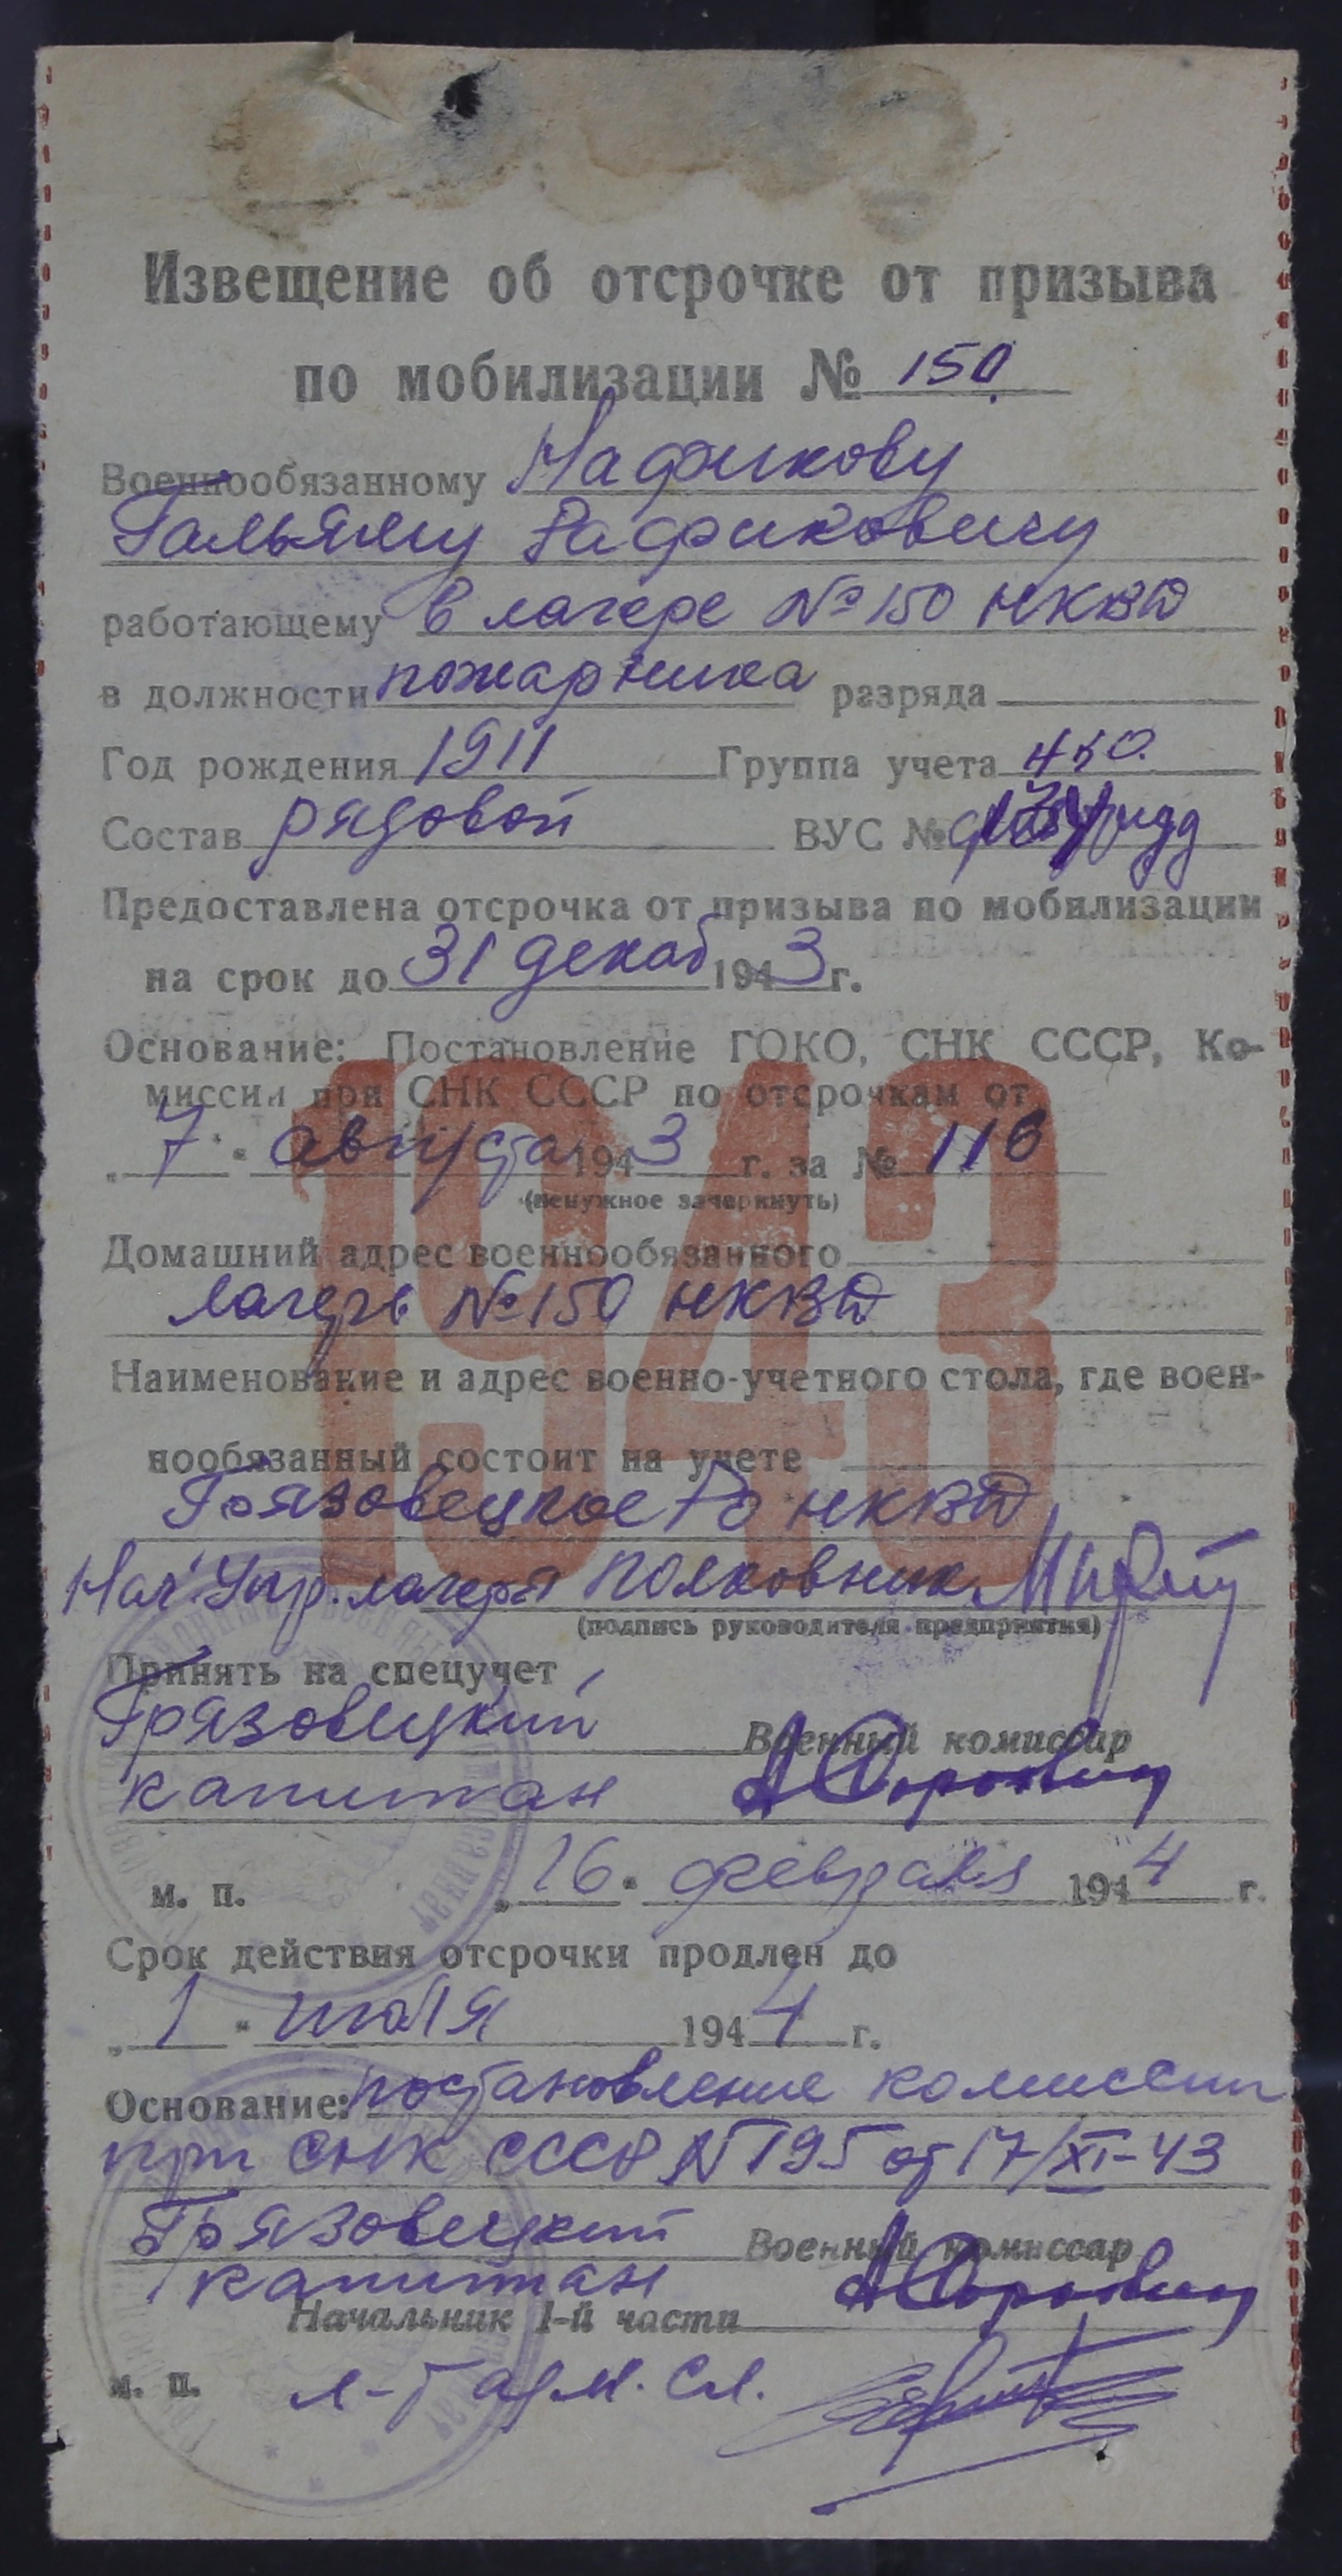 Извещение об отсрочке от призыва
по мобилизации № 150
Военнообязанному Нафикову
Гальяму Рафиковичу
работающему в лагере № 150 НКВД
в должности пожарника разряда
Год рождения 1911 Группа учета
Состав рядовой ВУС №
Предоставлена отсрочка от призыва по мобилизации
на срок до 31 декаб 1943 г.
Основание: Постановление ГОКО, СНК СССР, Ко-
миссии при СНК СССР по отсрочкам от
„ 7 " августа 1943 г. за № 116
(ненужное зачеркнуть)
1943
Домашний адрес военнообязанного
лагерь № 150 НКВД
Наименование и адрес военно-учетного стола, где воен-
нообязанный состоит на учете
Грязовецкое РО НКВД
Нач. Упр. лагеря полковник
(подпись руководителя предприятия)
Принять на спецучет
Грязовецкий Военный комиссар
капитан
м. п. „ 16 " февраля 1944 г.
Срок действия отсрочки продлен до
„ 1 " июля 1944 г.
Основание: постановление комиссии
при СНК СССР № 195 от 17/XI-43
Грязовецкий Военный комиссар
капитан
Начальник 1-й части
м. п. л-т адм. сл.